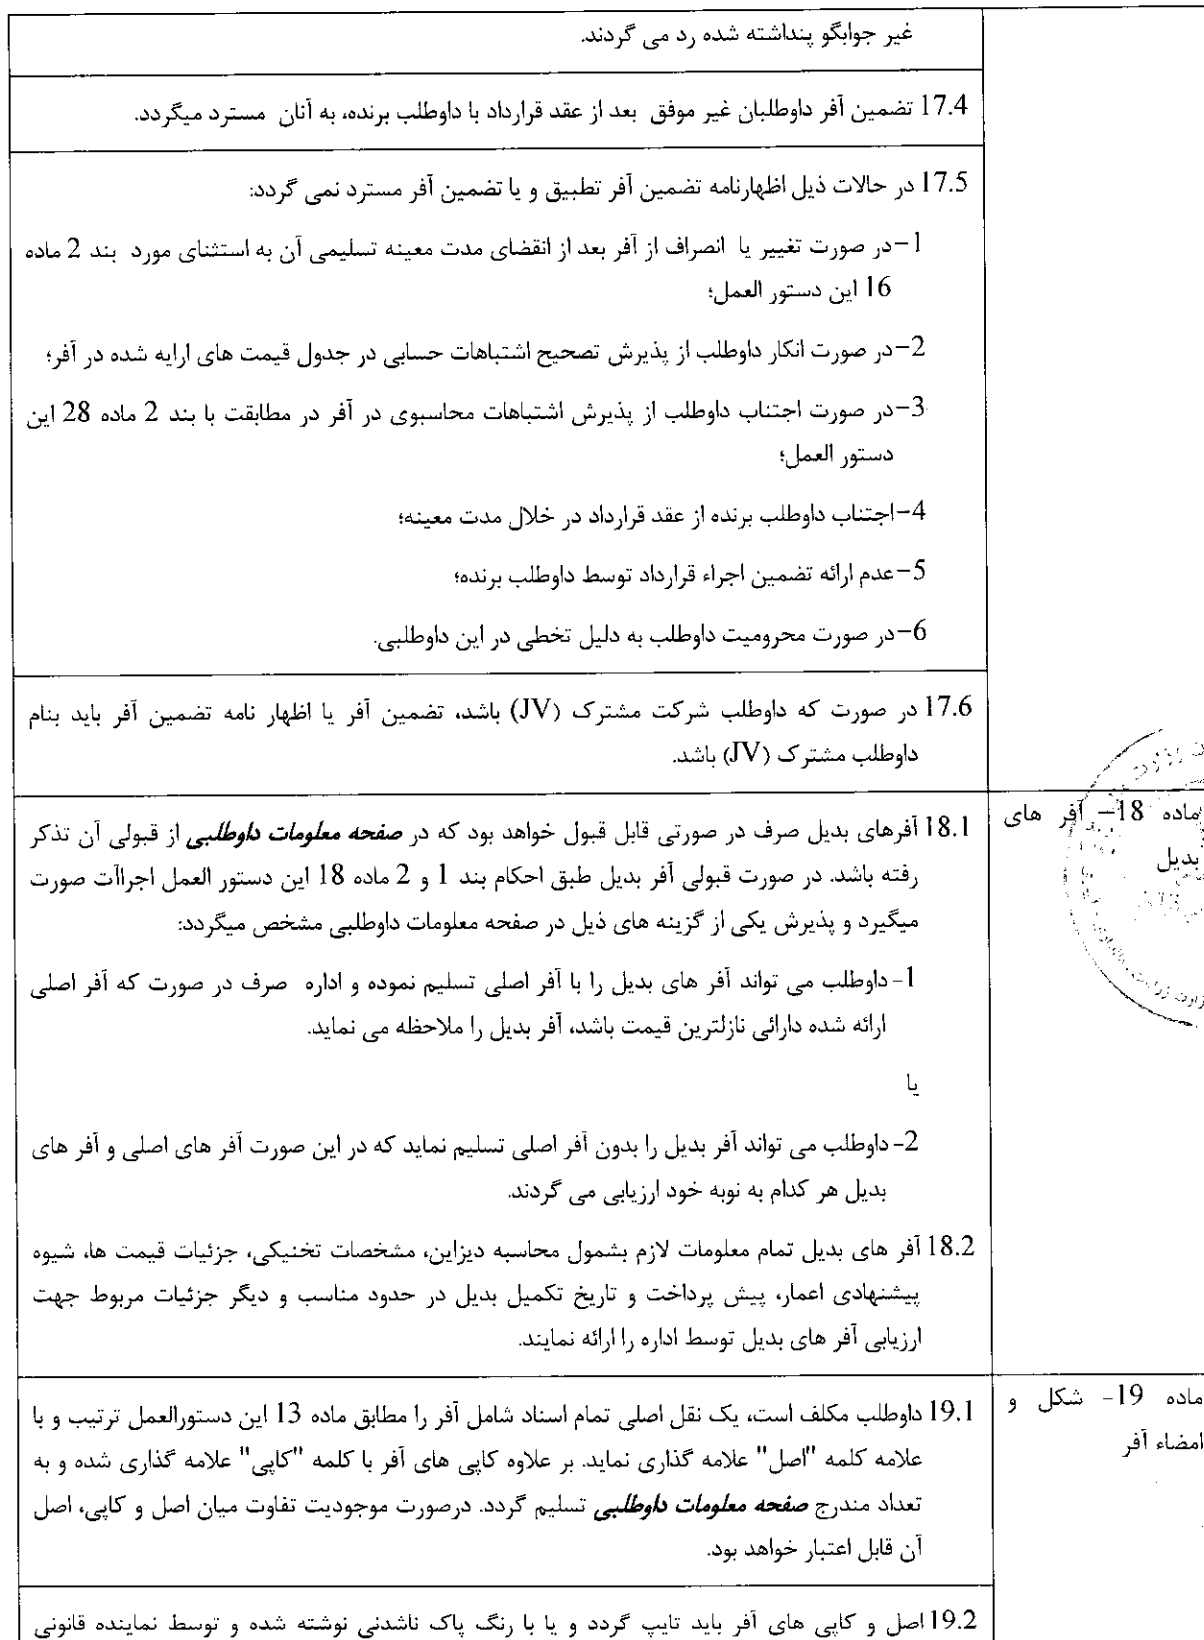 غیر جوابگو پنداشته شده رد می گردند.
17.4 تضمین آفر داوطلبان غیر موفق بعد از عقد قرارداد با داوطلب برنده، به آنان مسترد میگردد.
17.5 در حالات ذیل اظهارنامه تضمین آفر تطبیق و یا تضمین آفر مسترد نمی گردد:
1-در صورت تغییر یا انصراف از آفر بعد از انقضای مدت معینه تسلیمی آن به استثنای مورد بند 2 ماده
16 این دستور العمل؛
2-در صورت انکار داوطلب از پذیرش تصحیح اشتباهات حسابی در جدول قیمت های ارایه شده در آفر؛
3-در صورت اجتناب داوطلب از پذیرش اشتباهات محاسبوی در آفر در مطابقت با بند 2 ماده 28 این
دستور العمل؛
4-اجتناب داوطلب برنده از عقد قرارداد در خلال مدت معینه؛
5-عدم ارائه تضمین اجراء قرارداد توسط داوطلب برنده؛
6-در صورت محرومیت داوطلب به دلیل تخطی در این داوطلبی.
17.6 در صورت که داوطلب شرکت مشترک (JV) باشد، تضمین آفر یا اظهار نامه تضمین آفر باید بنام
داوطلب مشترک (JV) باشد.
ماده 18- آفر های
بدیل
18.1 آفرهای بدیل صرف در صورتی قابل قبول خواهد بود که در صفحه معلومات داوطلبی از قبولی آن تذکر
رفته باشد. در صورت قبولی آفر بدیل طبق احکام بند 1 و 2 ماده 18 این دستور العمل اجراآت صورت
میگیرد و پذیرش یکی از گزینه های ذیل در صفحه معلومات داوطلبی مشخص میگردد:
1- داوطلب می تواند آفر های بدیل را با آفر اصلی تسلیم نموده و اداره صرف در صورت که آفر اصلی
ارائه شده دارائی نازلترین قیمت باشد، آفر بدیل را ملاحظه می نماید.
یا
2- داوطلب می تواند آفر بدیل را بدون آفر اصلی تسلیم نماید که در این صورت آفر های اصلی و آفر های
بدیل هر کدام به نوبه خود ارزیابی می گردند.
18.2 آفر های بدیل تمام معلومات لازم بشمول محاسبه دیزاین، مشخصات تخنیکی، جزئیات قیمت ها، شیوه
پیشنهادی اعمار، پیش پرداخت و تاریخ تکمیل بدیل در حدود مناسب و دیگر جزئیات مربوط جهت
ارزیابی آفر های بدیل توسط اداره را ارائه نمایند.
ماده 19- شکل و
امضاء آفر
19.1 داوطلب مکلف است، یک نقل اصلی تمام اسناد شامل آفر را مطابق ماده 13 این دستورالعمل ترتیب و با
علامه کلمه "اصل" علامه گذاری نماید. بر علاوه کاپی های آفر با کلمه "کاپی" علامه گذاری شده و به
تعداد مندرج صفحه معلومات داوطلبی تسلیم گردد. درصورت موجودیت تفاوت میان اصل و کاپی، اصل
آن قابل اعتبار خواهد بود.
19.2 اصل و کاپی های آفر باید تایپ گردد و یا با رنگ پاک ناشدنی نوشته شده و توسط نماینده قانونی